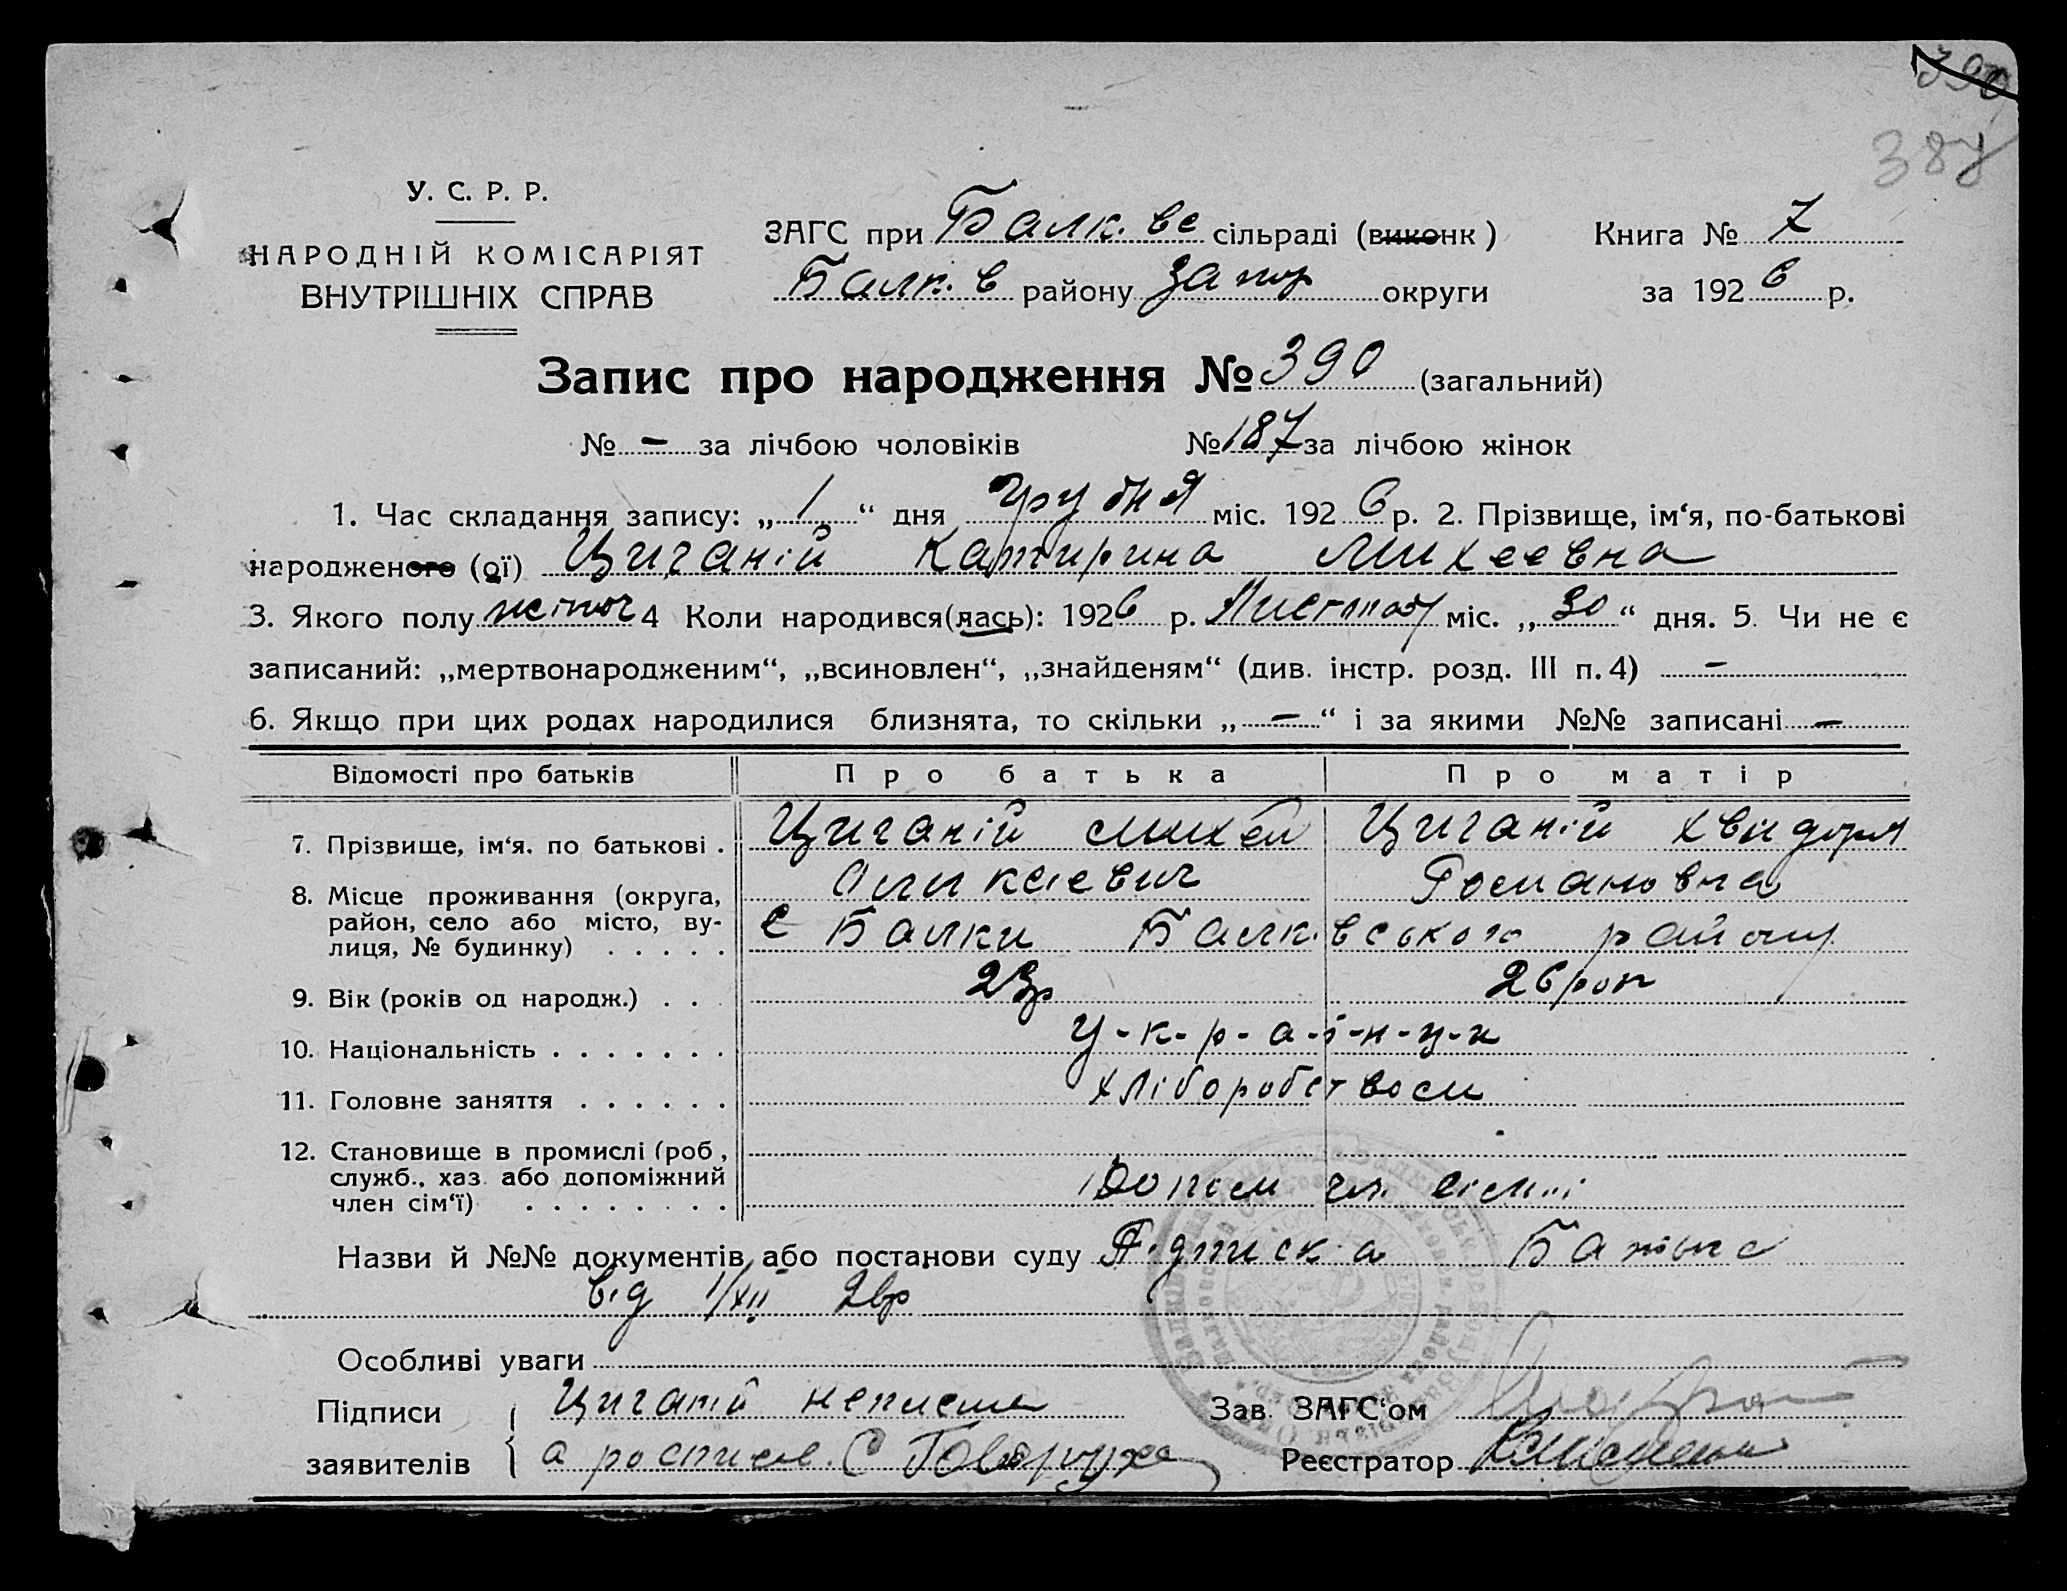 390
387
У. С. Р. Р.
НАРОДНІЙ КОМІСАРІЯТ
ВНУТРІШНІХ СПРАВ
ЗАГС при Балк. ве сільраді (виконк)
Балк. в району Запор округи
Книга № 7
за 1926 р.
Запис про народження № 390 (загальний)
№ - за лічбою чоловіків № 187 за лічбою жінок
1. Час складання запису: „ 1 “ дня грудня міс. 1926 р. 2. Прізвище, ім‘я, по-батькові
народженого (ої) Циганій Катирина Михеевна
3. Якого полу жіноч 4 Коли народився(лась): 1926 р. Листопад міс. „ 30 “ дня. 5. Чи не є
записаний: „мертвонародженим“, „всиновлен“, „знайденям“ (див. інстр. розд. III п. 4) -
6. Якщо при цих родах народилися близнята, то скільки „ - “ і за якими №№ записані -
Відомості про батьків Про батька Про матір
7. Прізвище, ім‘я. по батькові . Циганій Михей Оликсіевич Циганій Хвидора Романовна
8. Місце проживання (округа,
район, село або місто, ву-
лиця, № будинку) . . . . . с Балки Балківського району
9. Вік (років од народж.) . . . 23р 26 рок
10. Національність . . . . . . . У-к-р-а-ї-н-ц-и
11. Головне заняття . . . . . . хліборобством
12. Становище в промислі (роб ,
служб., хаз. або допоміжний
член сім‘ї) . . . . . . . . Допом чл. сімї
Назви й №№ документів або постанови суду Підписка
від 1/XII 26р
Особливі уваги
Підписи
заявителів
Циганій
а росписал. С Говоруха
Зав. ЗАГС‘ом
Реєстратор